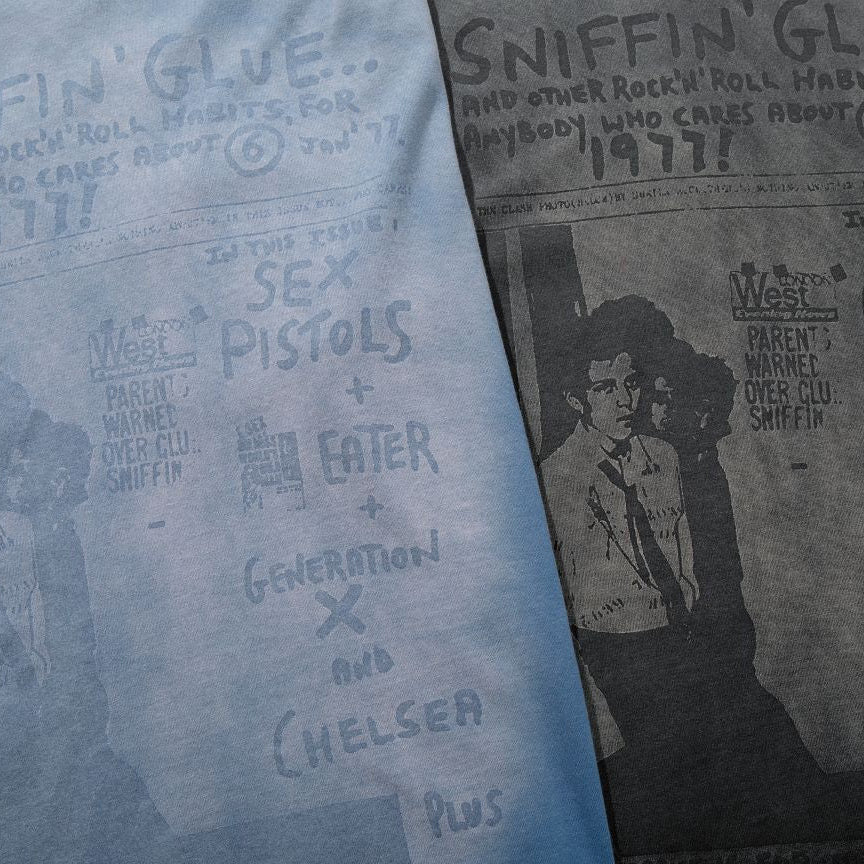 FIN' GLUE...
ROCK'N'ROLL HABITS, FOR
WHO CARES ABOUT 6 JAN' 77.
77!
IN THIS ISSUE,
SEX
PISTOLS
+
EATER
+
GENERATION
X
AND
CHELSEA
PLUS
LONDON
West
Evening News
PARENTS
WARNED
OVER GLU..
SNIFFIN
-
SNIFFIN' GL
AND OTHER ROCK'N'ROLL HABI
ANYBODY WHO CARES ABOUT
1977!
THE CLASH PHOTO (BELOW) BY
I
LONDON
West
Evening News
PARENT S
WARNED
OVER GLU..
SNIFFIN
-